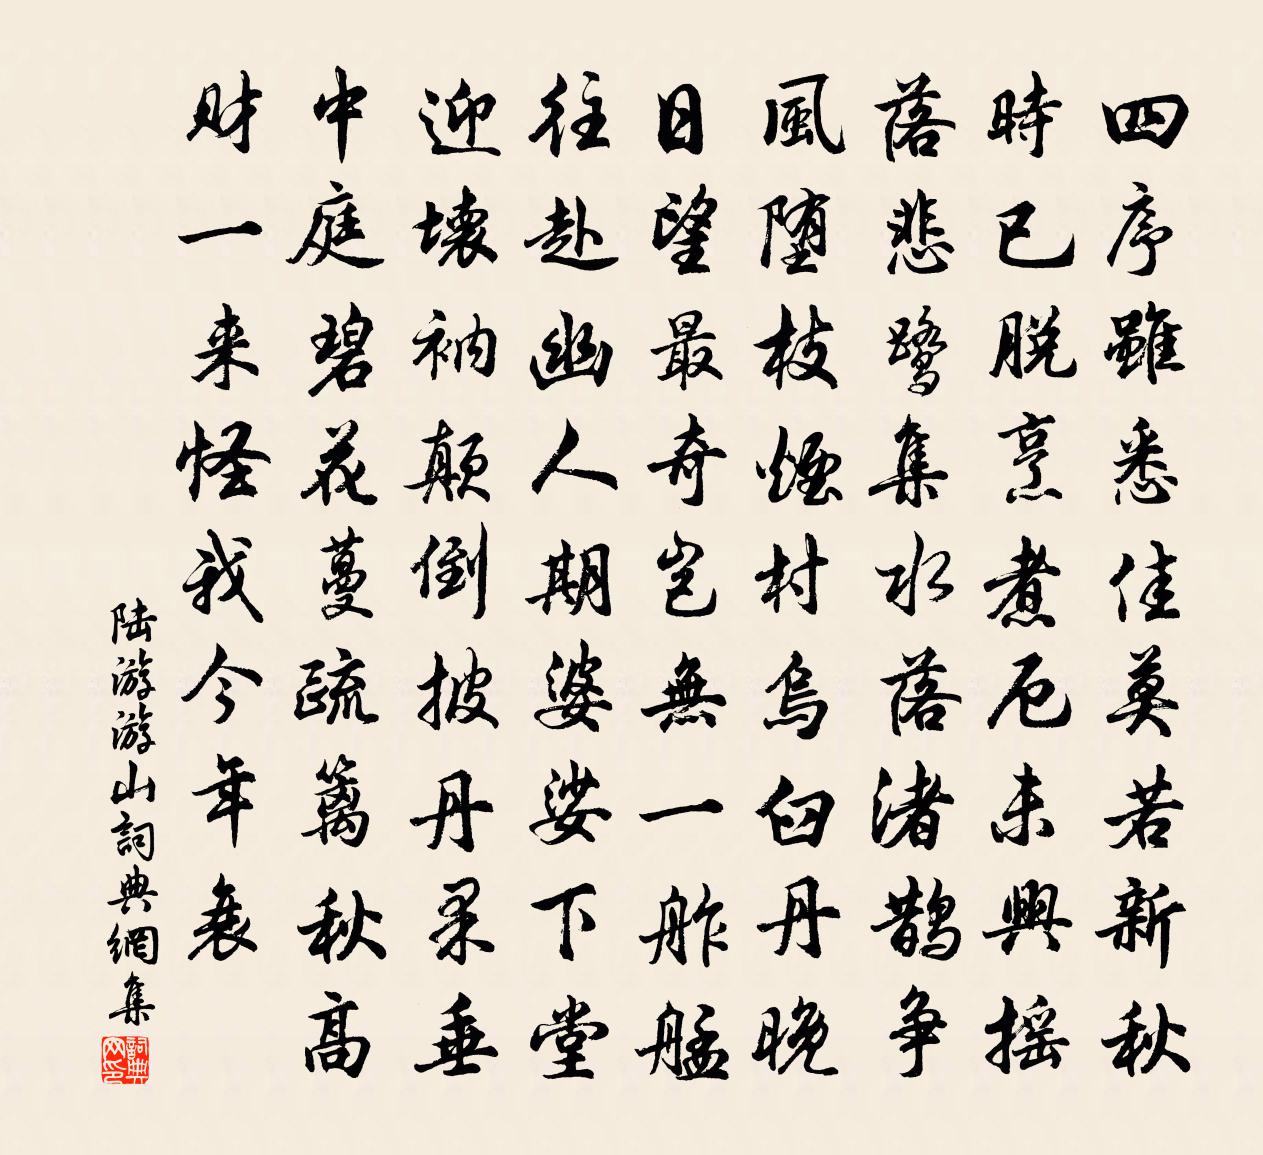 四序雖悉佳莫若新秋
時已脱烹煮厄未興摇
落悲鹭集水落渚鵲争
風堕枝煙村烏臼丹晚
日望最奇豈無一舴艋
往赴幽人期婆娑下堂
迎壞衲顛倒披丹果垂
中庭碧花蔓疏篱秋高
财一来怪我今年衰
陆游游山詞典網集
詞典网印